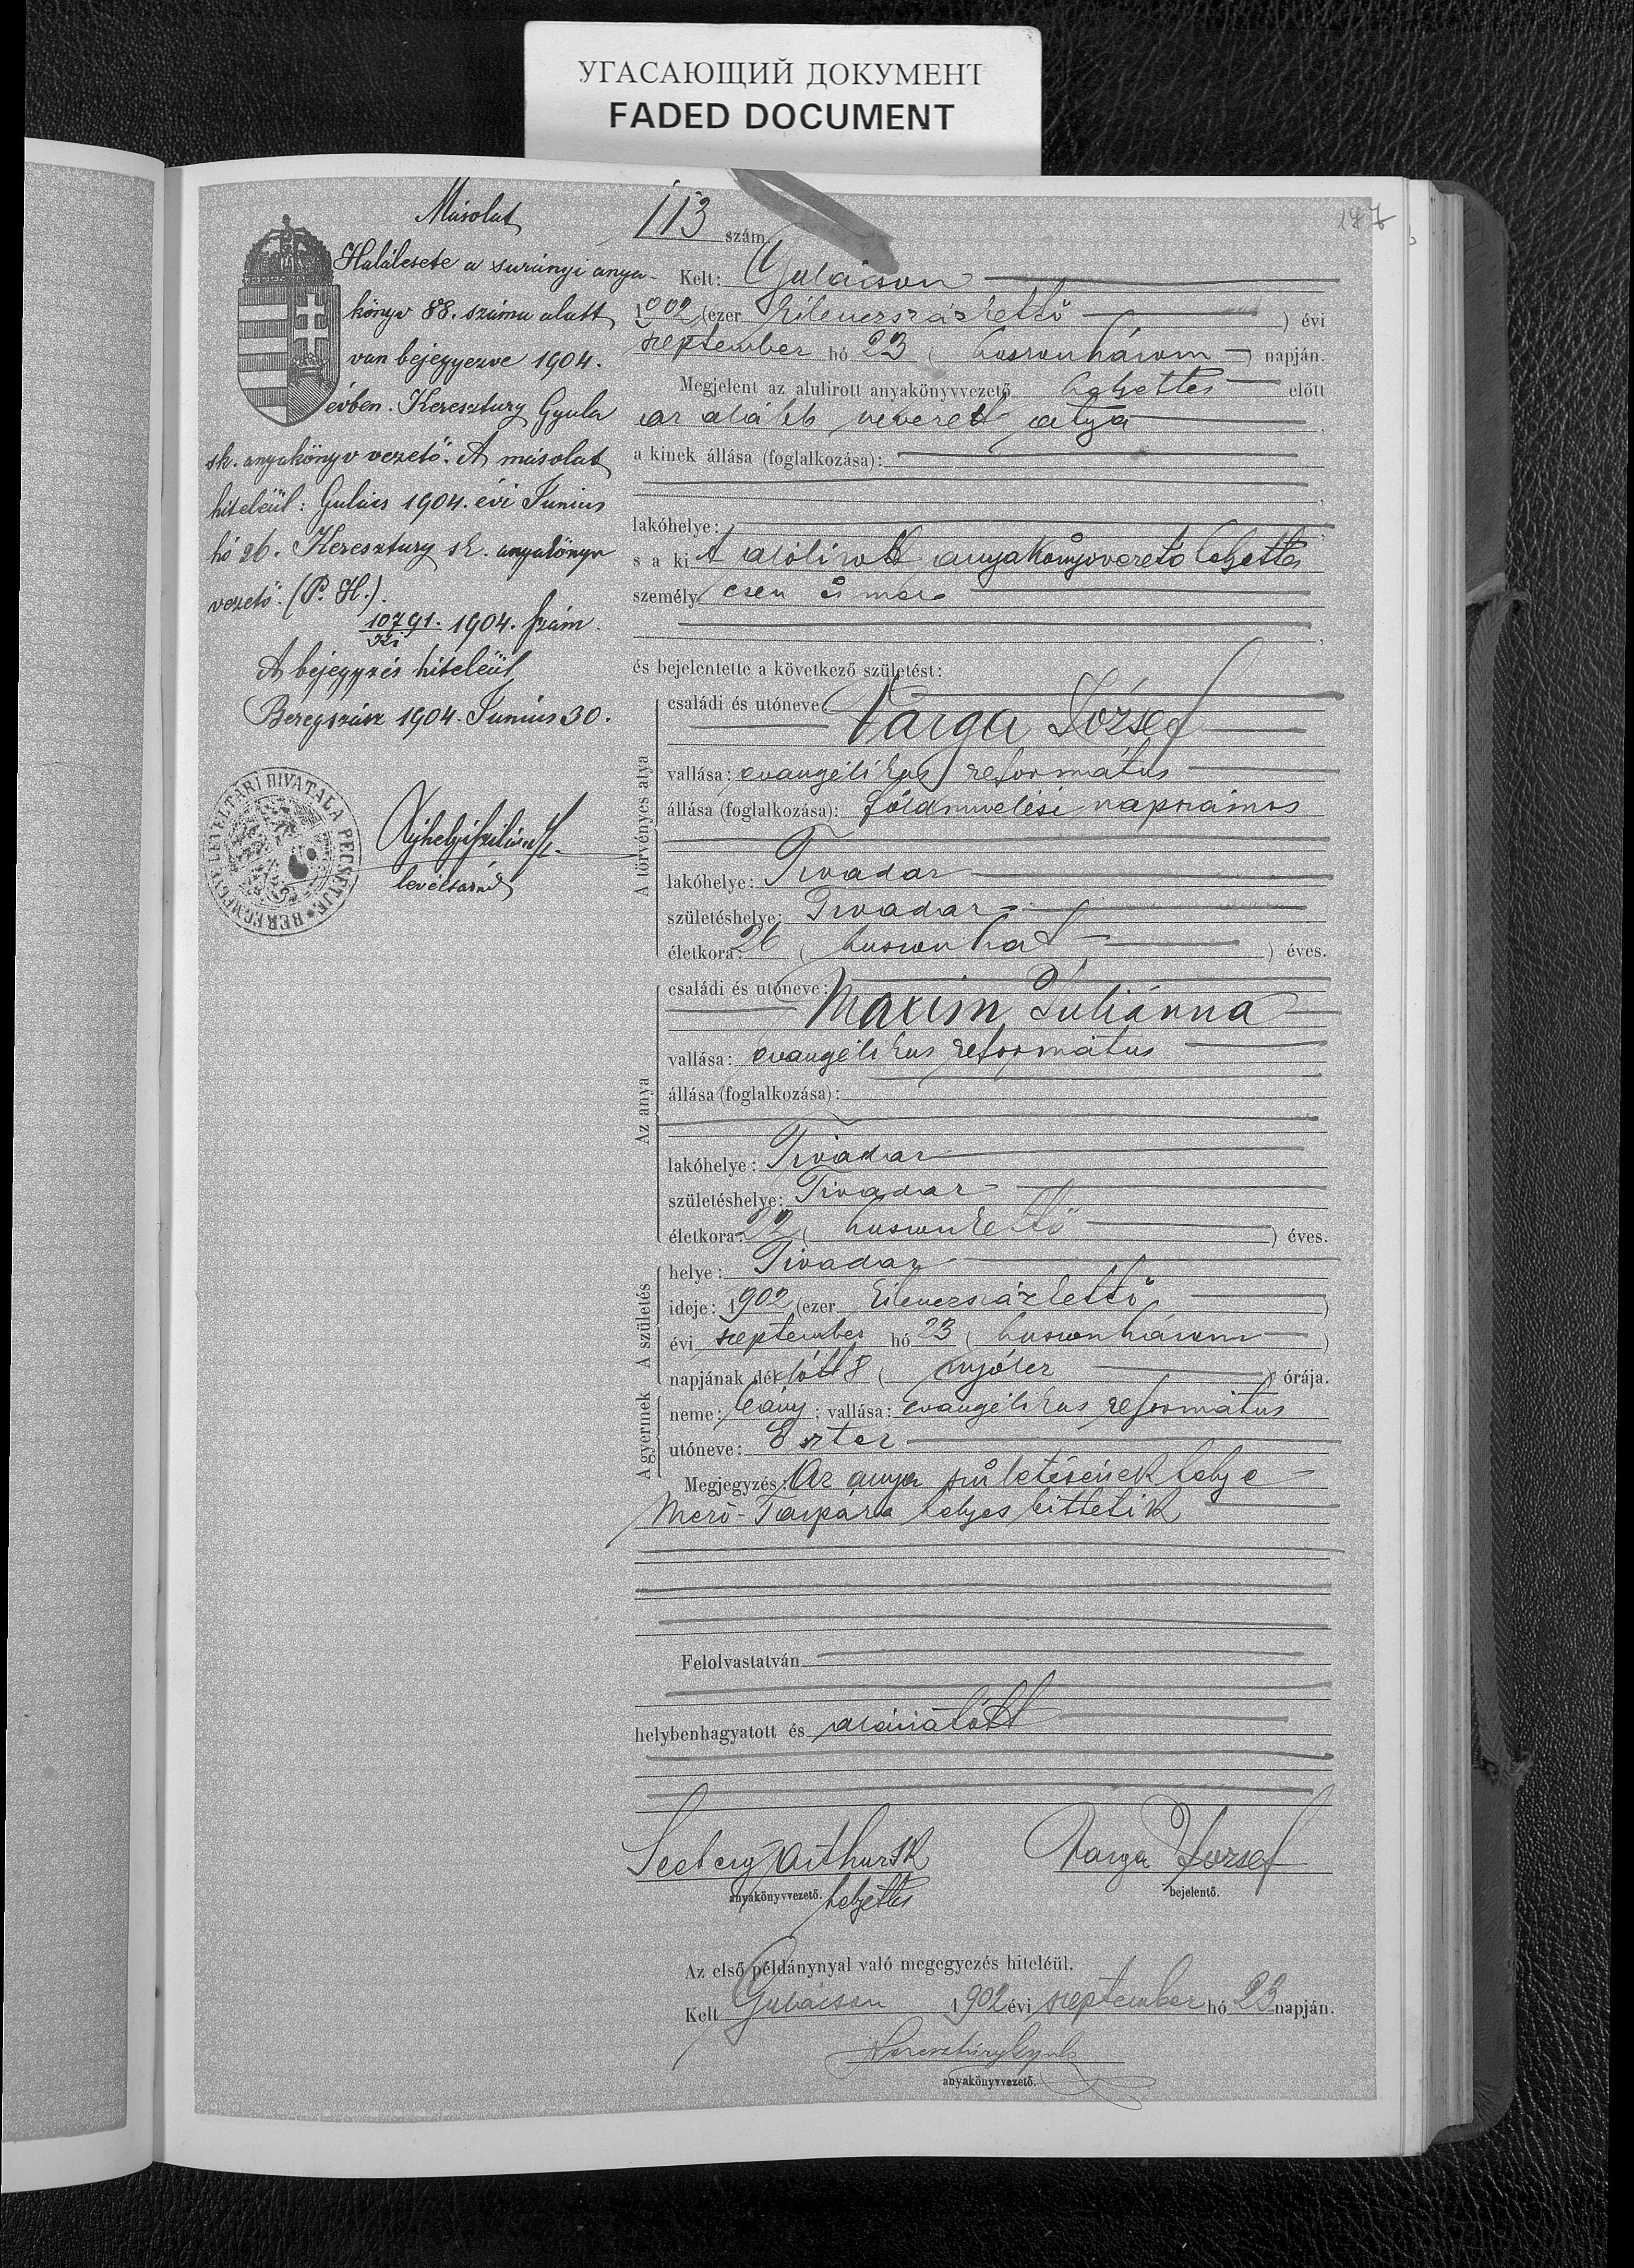 УГАСАЮЩИЙ ДОКУМЕНТ
FADED DOCUMENT
187
Másolat
Halálesete a surányi anya-
könyv 88. száma alatt
van bejegyezve 1904.
évben. Keresztury Gyula
sk. anyakönyv vezető. A másolat
hiteléül: Gulács 1904. évi Junius
hó 26. Keresztury sk. anyakönyv
vezető. (P. H.).
10791. 1904. szám.
Ki
A bejegyzés hiteléül
Beregszász 1904. Junius 30.
levéltárnok
BEREGMEGYE LEVÉLTÁRI HIVATALA PECSÉTJE
113 szám.
Kelt: Gulácson
1902 (ezer kilenczszázkettő ) évi
szeptember hó 23 ( huszonhárom ) napján.
Megjelent az alulirott anyakönyvvezető helyettes előtt
az alább nevezett atya
a kinek állása (foglalkozása):
lakóhelye:
s a kit alólirott anyakönyvvezető helyettes
személyesen ismer
és bejelentette a következő születést:
A törvényes atya
családi és utóneve:
Varga József
vallása: evangélikus református
állása (foglalkozása): földmivelési napszámos
lakóhelye: Tivadar
születéshelye: Tivadar
életkora: 26 ( huszonhat ) éves.
Az anya
családi és utóneve:
Maxim Juliánna
vallása: evangélikus református
állása (foglalkozása):
lakóhelye: Tivadar
születéshelye: Tivadar
életkora: 22 ( huszonkettő ) éves.
A születés
helye: Tivadar
ideje: 1902 (ezer kilenczszázkettő )
évi szeptember hó 23 ( huszonhárom )
napjának délelőtt 8 ( nyolcz ) órája.
A gyermek
neme: leány; vallása: evangélikus református
utóneve: Eszter
Megjegyzés: Az anya születésének helye
Mező-Tarpára helyesbittetik
Felolvastatván
helybenhagyatott és aláiratott
Seeberg Arthur sk Varga József
anyakönyvvezető. helyettes bejelentő.
Az első példánynyal való megegyezés hiteléül.
Kelt Gulácson 1902 évi szeptember hó 23 napján.
Keresztury Gyula
anyakönyvvezető.